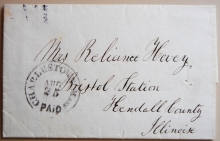 Mrs Reliance Hovey
Bristol Station
Kendall County
Illinois
CHARLESTOWN
AUG
25
PAID